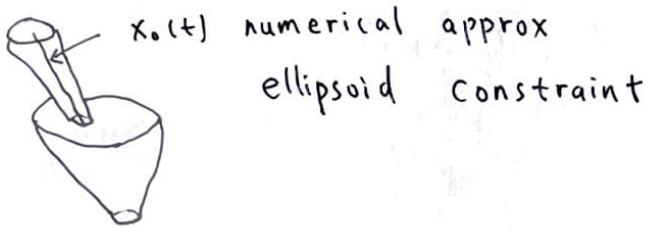 x₀(t) numerical approx
ellipsoid constraint